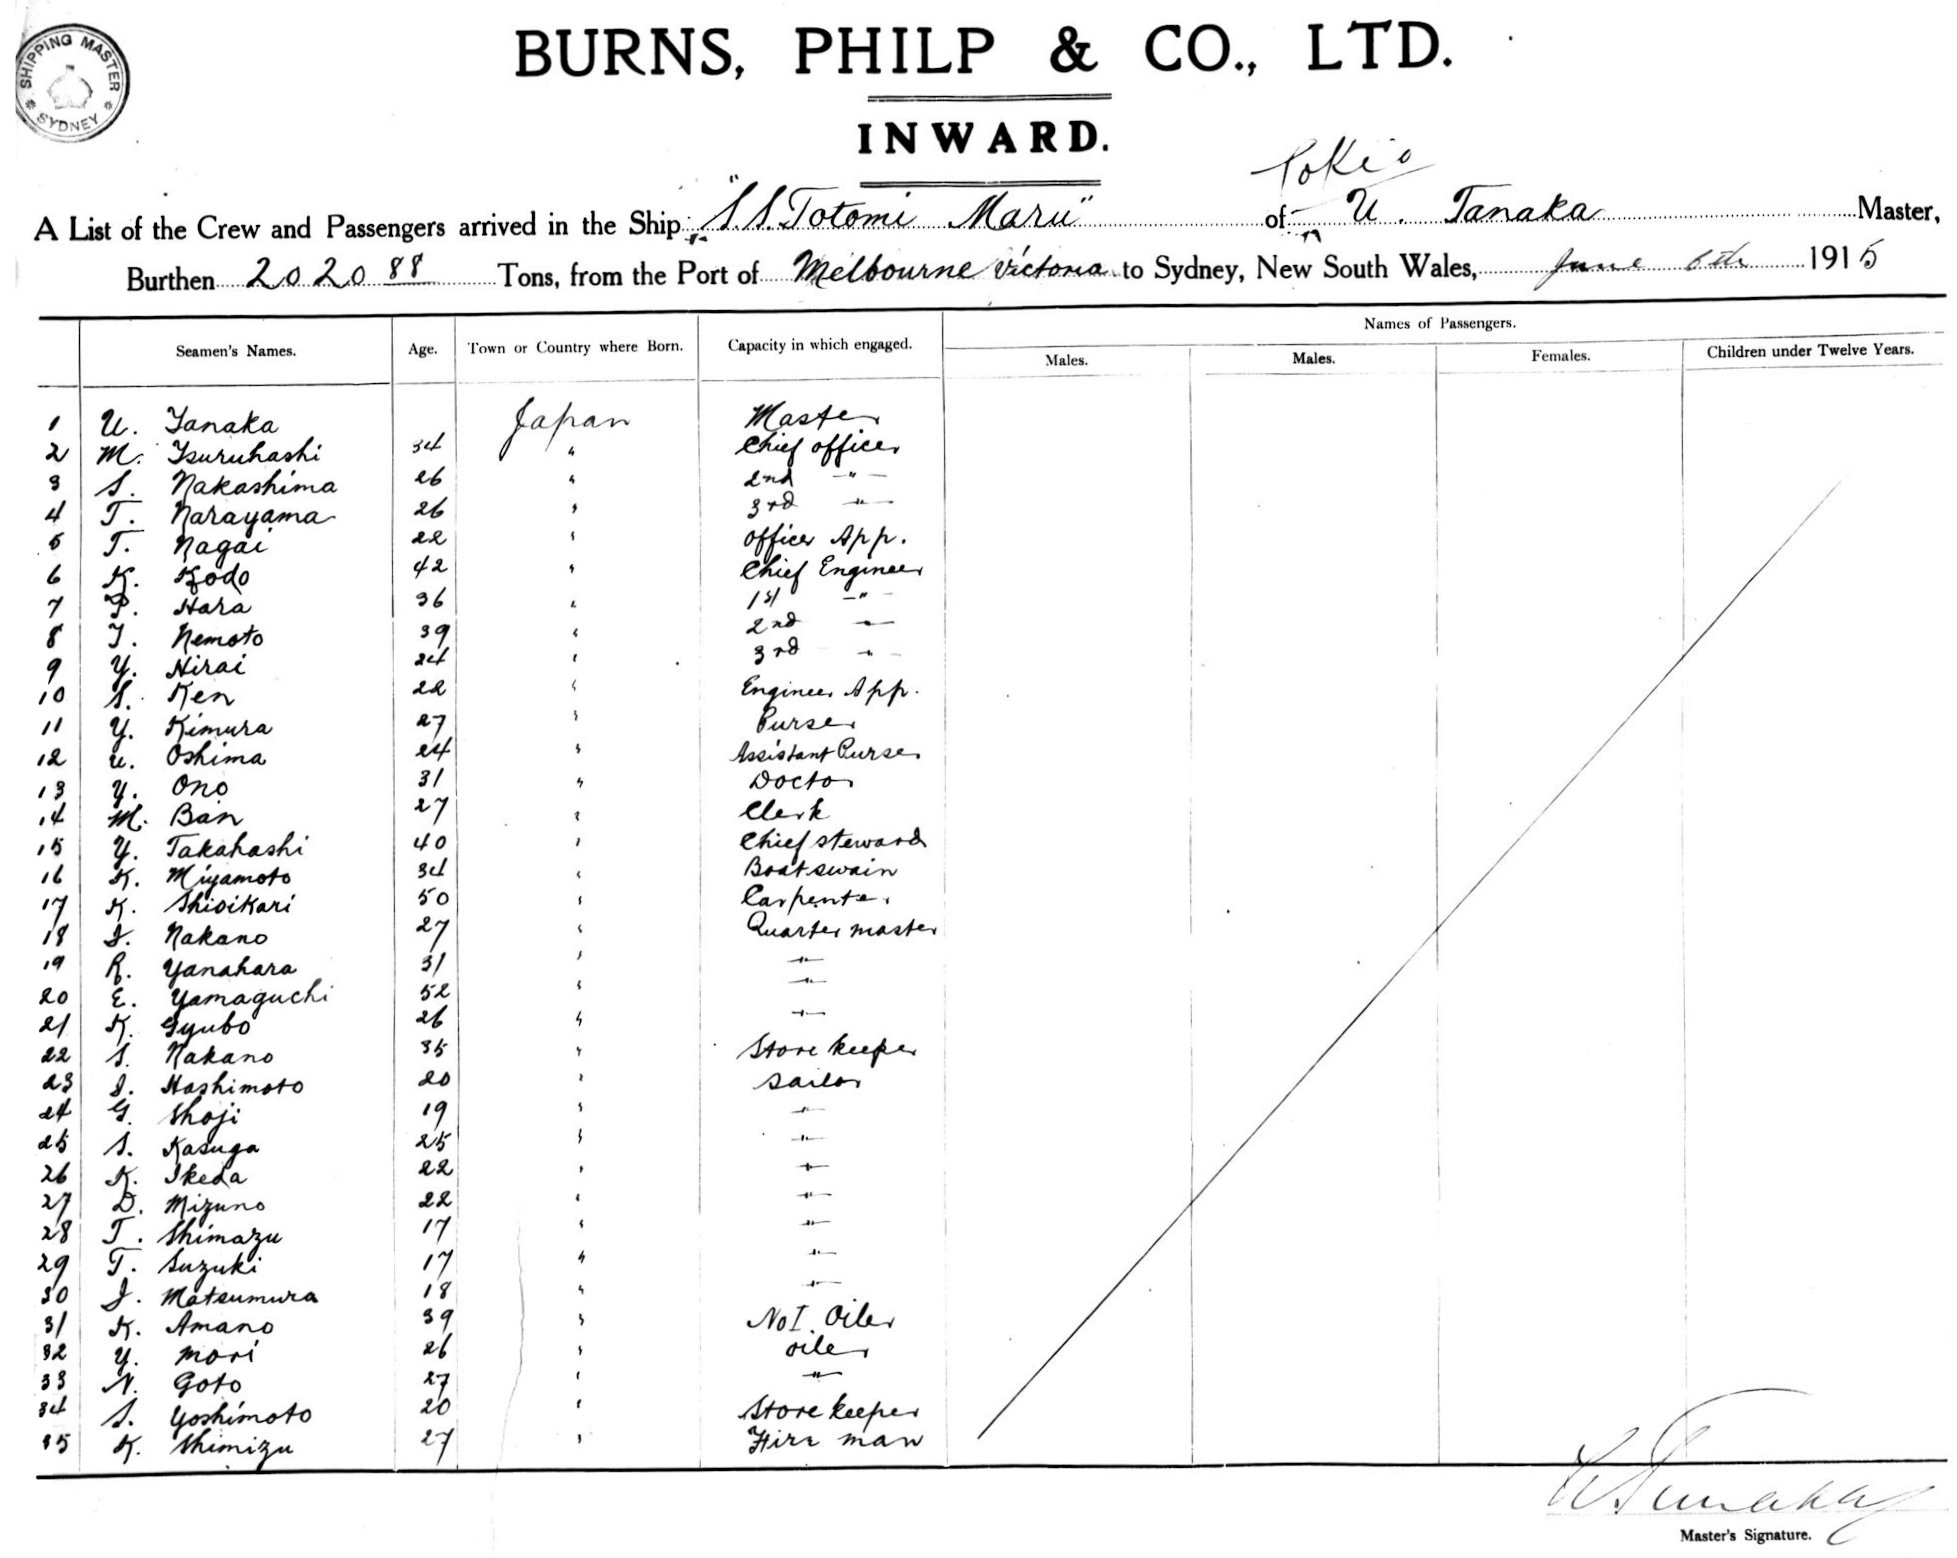 SHIPPING MASTER
SYDNEY
BURNS, PHILP & CO., LTD.
INWARD.
Tokio
A List of the Crew and Passengers arrived in the Ship "S.S. Totomi Maru" of U. Tanaka Master,
Burthen 2020 88 Tons, from the Port of Melbourne Victoria to Sydney, New South Wales, June 6th 1915
Names of Passengers.
Seamen's Names. Age. Town or Country where Born. Capacity in which engaged. Males. Males. Females. Children under Twelve Years.
1 U. Tanaka Japan Master
2 M. Tsuruhashi 34 " Chief officer
3 S. Nakashima 26 " 2nd "
4 T. Narayama 26 " 3rd "
5 T. Nagai 22 " Officer App.
6 K. Kodo 42 " Chief Engineer
7 Hara 36 " 1st "
8 T. Nemoto 39 " 2nd "
9 Y. Hirai 24 " 3rd "
10 S. Ken 22 " Engineer App.
11 Y. Kimura 27 " Purser
12 U. Oshima 24 " Assistant Purser
13 Y. Ono 31 " Doctor
14 M. Ban 27 " Clerk
15 Y. Takahashi 40 " Chief steward
16 K. Miyamoto 34 " Boatswain
17 K. Shioikari 50 " Carpenter
18 I. Nakano 27 " Quarter master
19 R. Yanahara 31 " "
20 E. Yamaguchi 52 " "
21 K. Gyubo 26 " "
22 S. Nakano 35 " Store keeper
23 I. Hashimoto 20 " Sailor
24 G. Shoji 19 " "
25 S. Kasuga 25 " "
26 K. Ikeda 22 " "
27 D. Mizuno 22 " "
28 T. Shimazu 17 " "
29 T. Suzuki 17 " "
30 I. Matsumura 18 " "
31 K. Amano 39 " No I. Oiler
32 Y. Mori 26 " oiler
33 N. Goto 27 " "
34 S. Yoshimoto 20 " Store keeper
35 K. Shimizu 27 " Fire man
U. Tanaka
Master's Signature.